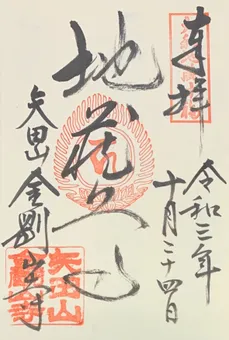 奉拝
令和三年
十月二十四日
地蔵
矢田山 金剛山寺
矢田山